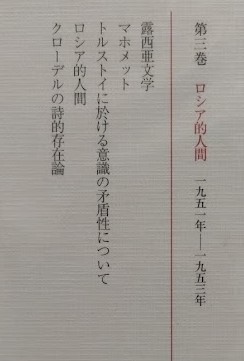 第三巻 ロシア的人間 一九五一年——一九五三年
露西亜文学
マホメット
トルストイに於ける意識の矛盾性について
ロシア的人間
クローデルの詩的存在論